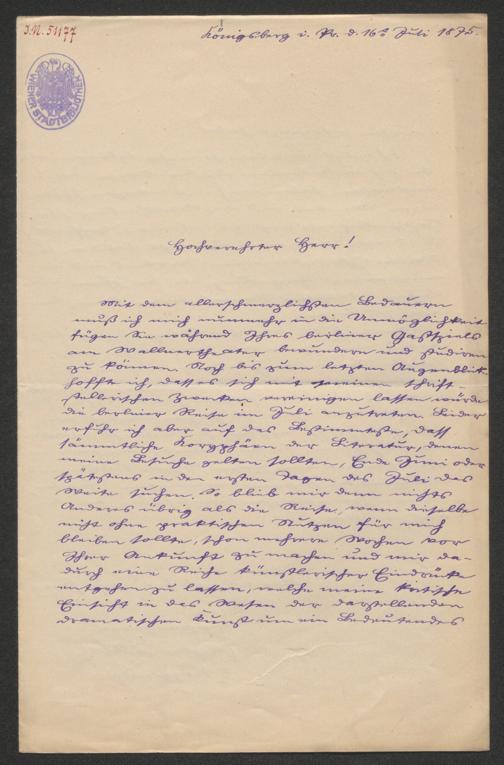 I.N. 51177
Königsberg i. Pr. d. 16t. Juli 1875.
WIENER STADTBIBLIOTHEK
Hochverehrter Herr!
Mit dem allerschmerzlichsten Bedauern
muß ich mich nunmehr in die Unmöglichkeit
fügen Sie während Ihres berliner Gastspiels
am Wallnertheater bewundern und studiren
zu können. Noch bis zum letzten Augenblick
hoffte ich, dass es sich mit meinen schrift-
stellerischen Zwecken vereinigen lassen würde
die berliner Reise im Juli anzutreten. Leider
erfuhr ich aber auf das Bestimmteste, dass
sämmtliche Korypháen der Literatur, denen
meine Besuche gelten sollten, Ende Juni oder
spätestens in den ersten Tagen des Juli das
Weite suchen. So blieb mir denn nichts
Anderes übrig als die Reise, wenn dieselbe
nicht ohne praktischen Nutzen für mich
bleiben sollte, schon mehrere Wochen vor
Ihrer Ankunft zu machen und mir da-
durch eine Reihe künstlerischer Eindrücke
entgehen zu lassen, welche meine kritische
Einsicht in das Wesen der darstellenden
dramatischen Kunst um ein Bedeutendes